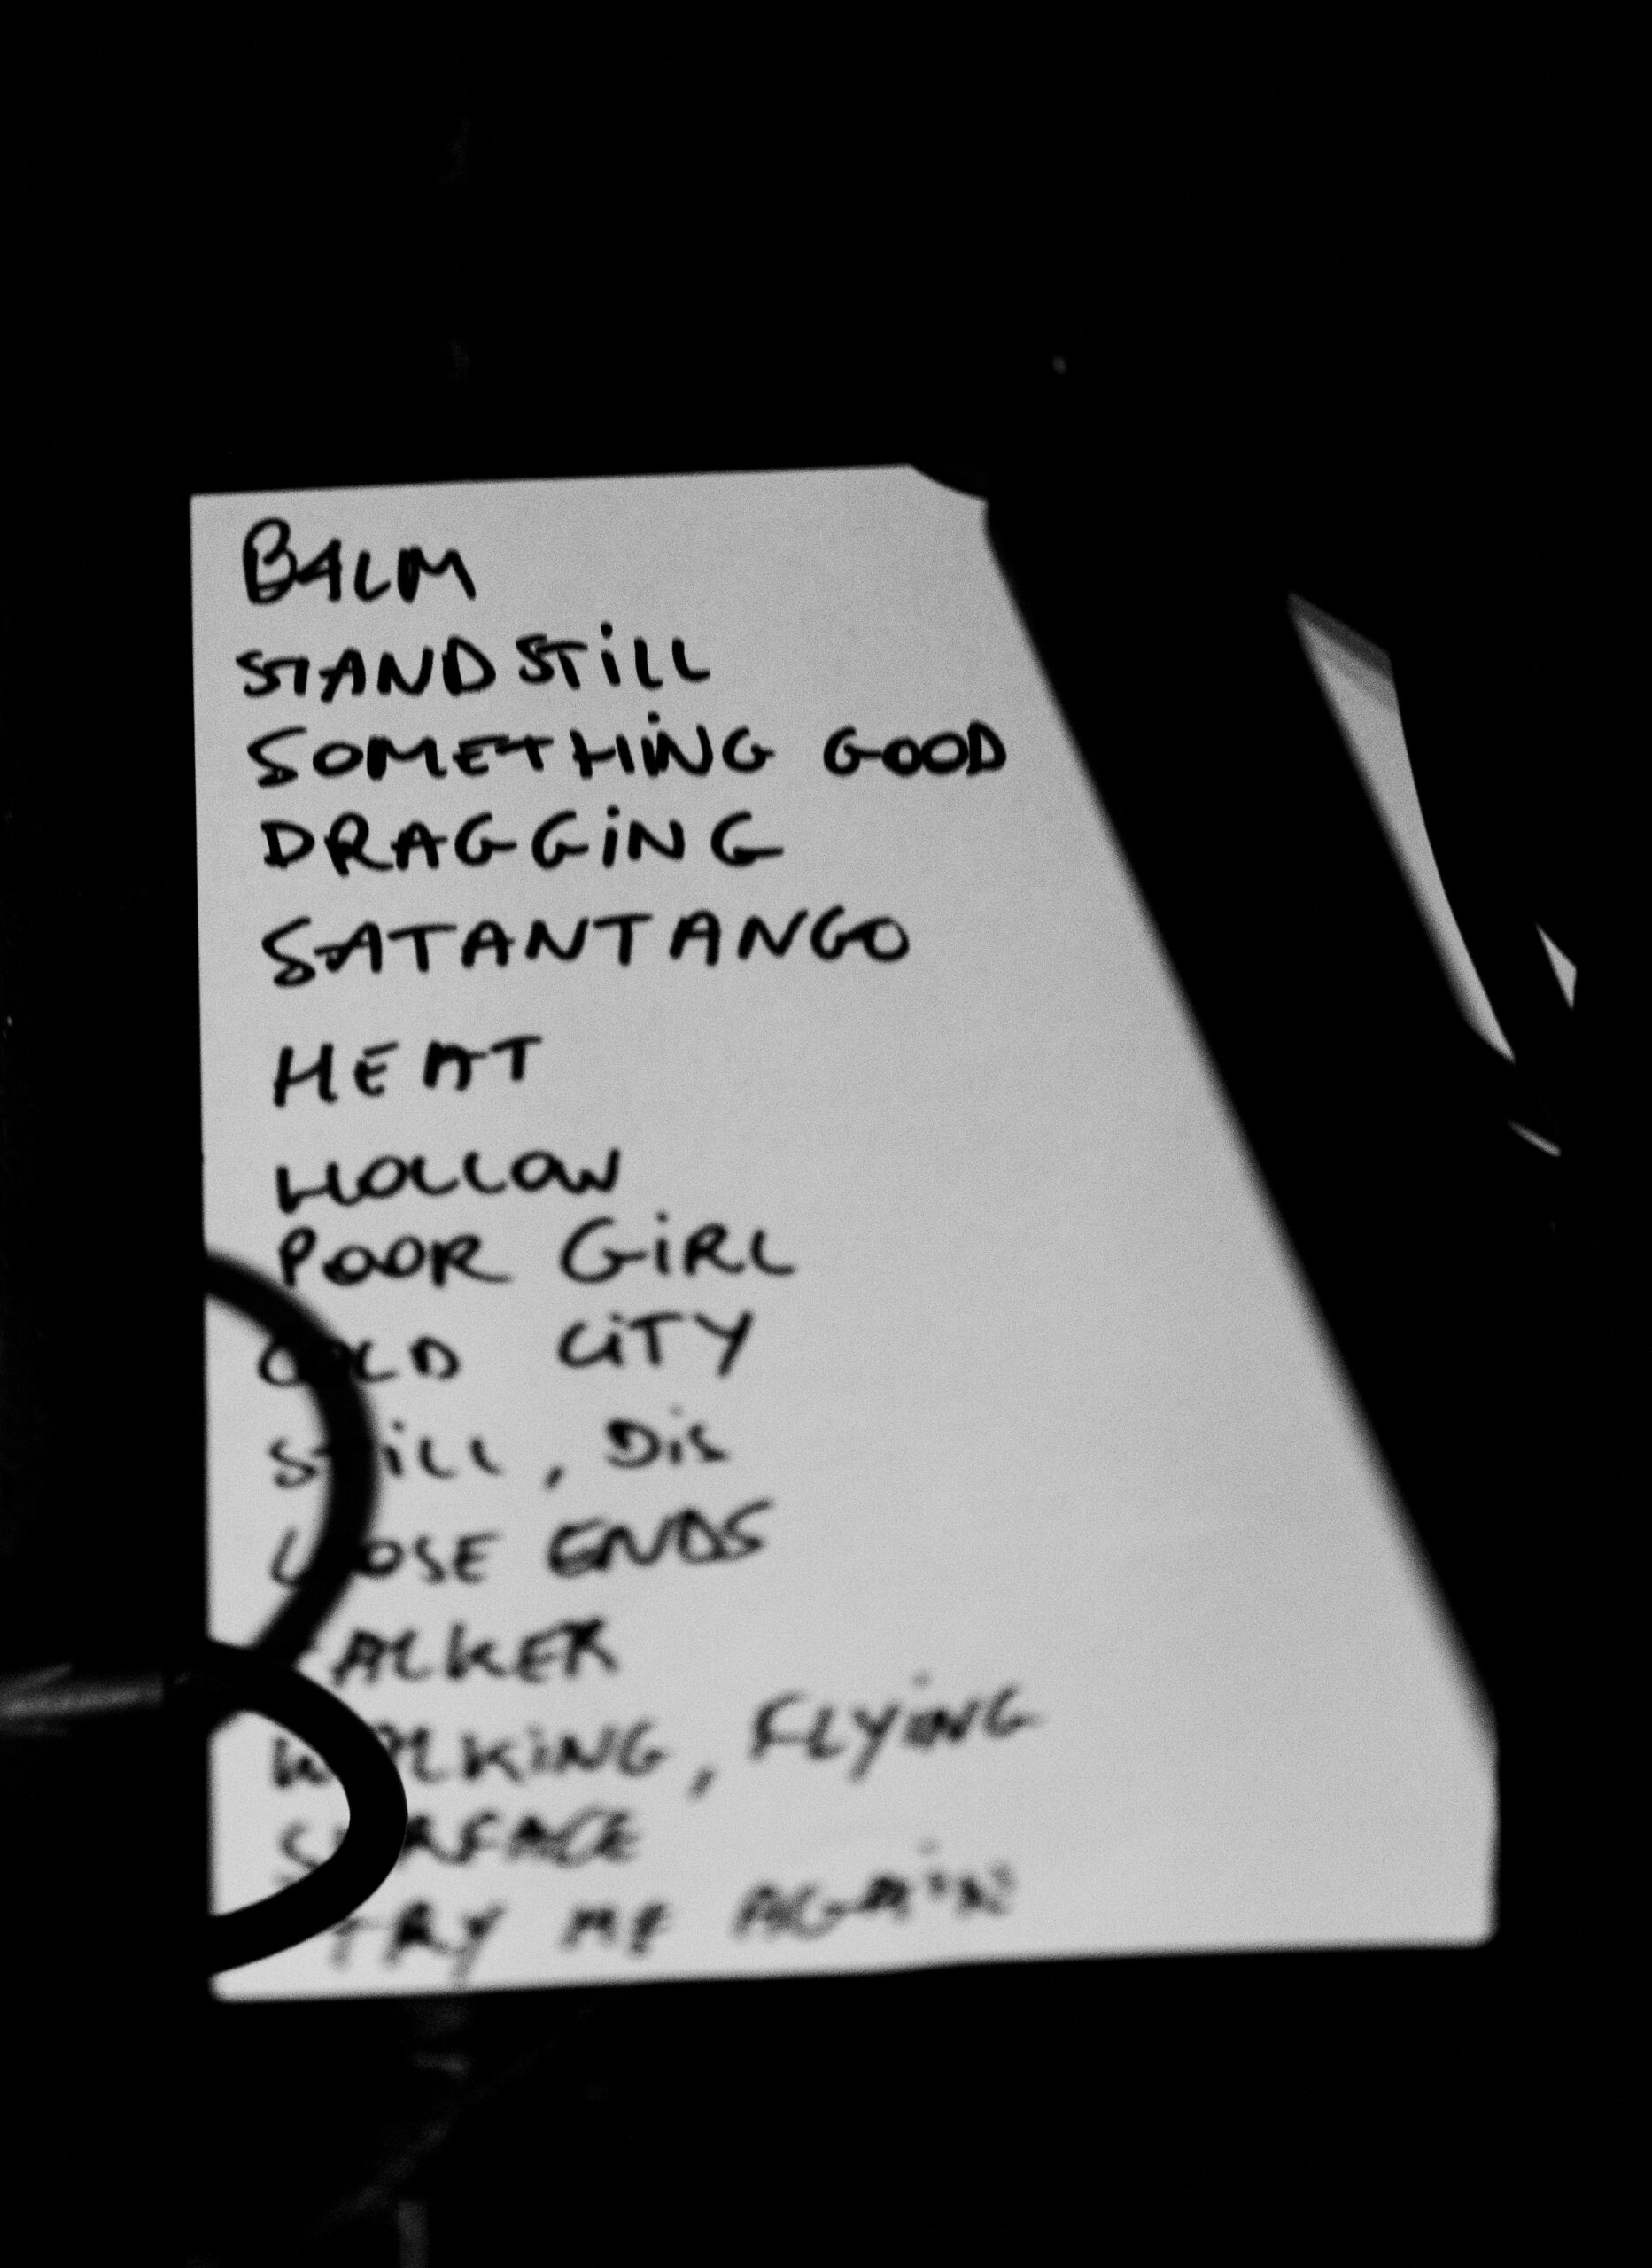 BALM
STANDSTiLL
SOMETHiNG GOOD
DRAGGiNG
SATANTANGO
HEAT
HOLLOW
POOR GiRL
COLD CiTY
STiLL, Dis
LOOSE ENDS
WALKiNG, FLYiNG
SURFACE
TRY ME AGAiN